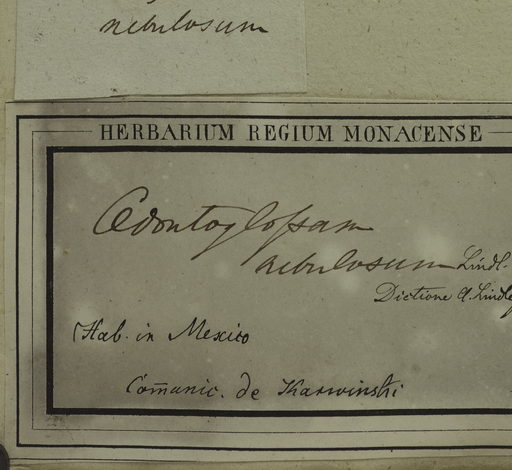 nebulosum
HERBARIUM REGIUM MONACENSE
Odontoglossam
nebulosum Lindl.
Dictione A. Lindley
Hab. in Mexico
Com̅unic. de Karwinski